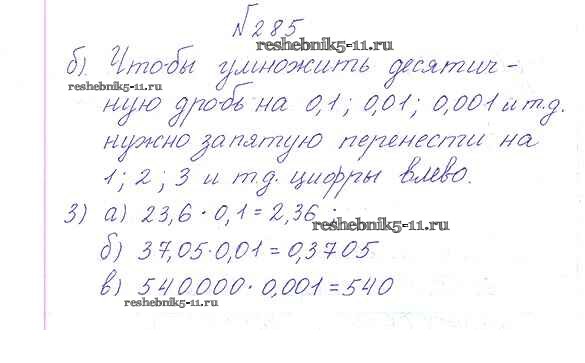 №285
reshebnik5-11.ru
б). Чтобы умножить десятич-
reshebnik5-11.ru
ную дробь на 0,1; 0,01; 0,001 и т.д.
нужно запятую перенести на
1; 2; 3 и т.д. цифры влево.
3) а) 23,6 · 0,1 = 2,36
reshebnik5-11.ru
б) 37,05 · 0,01 = 0,3705
в) 540000 · 0,001 = 540
reshebnik5-11.ru